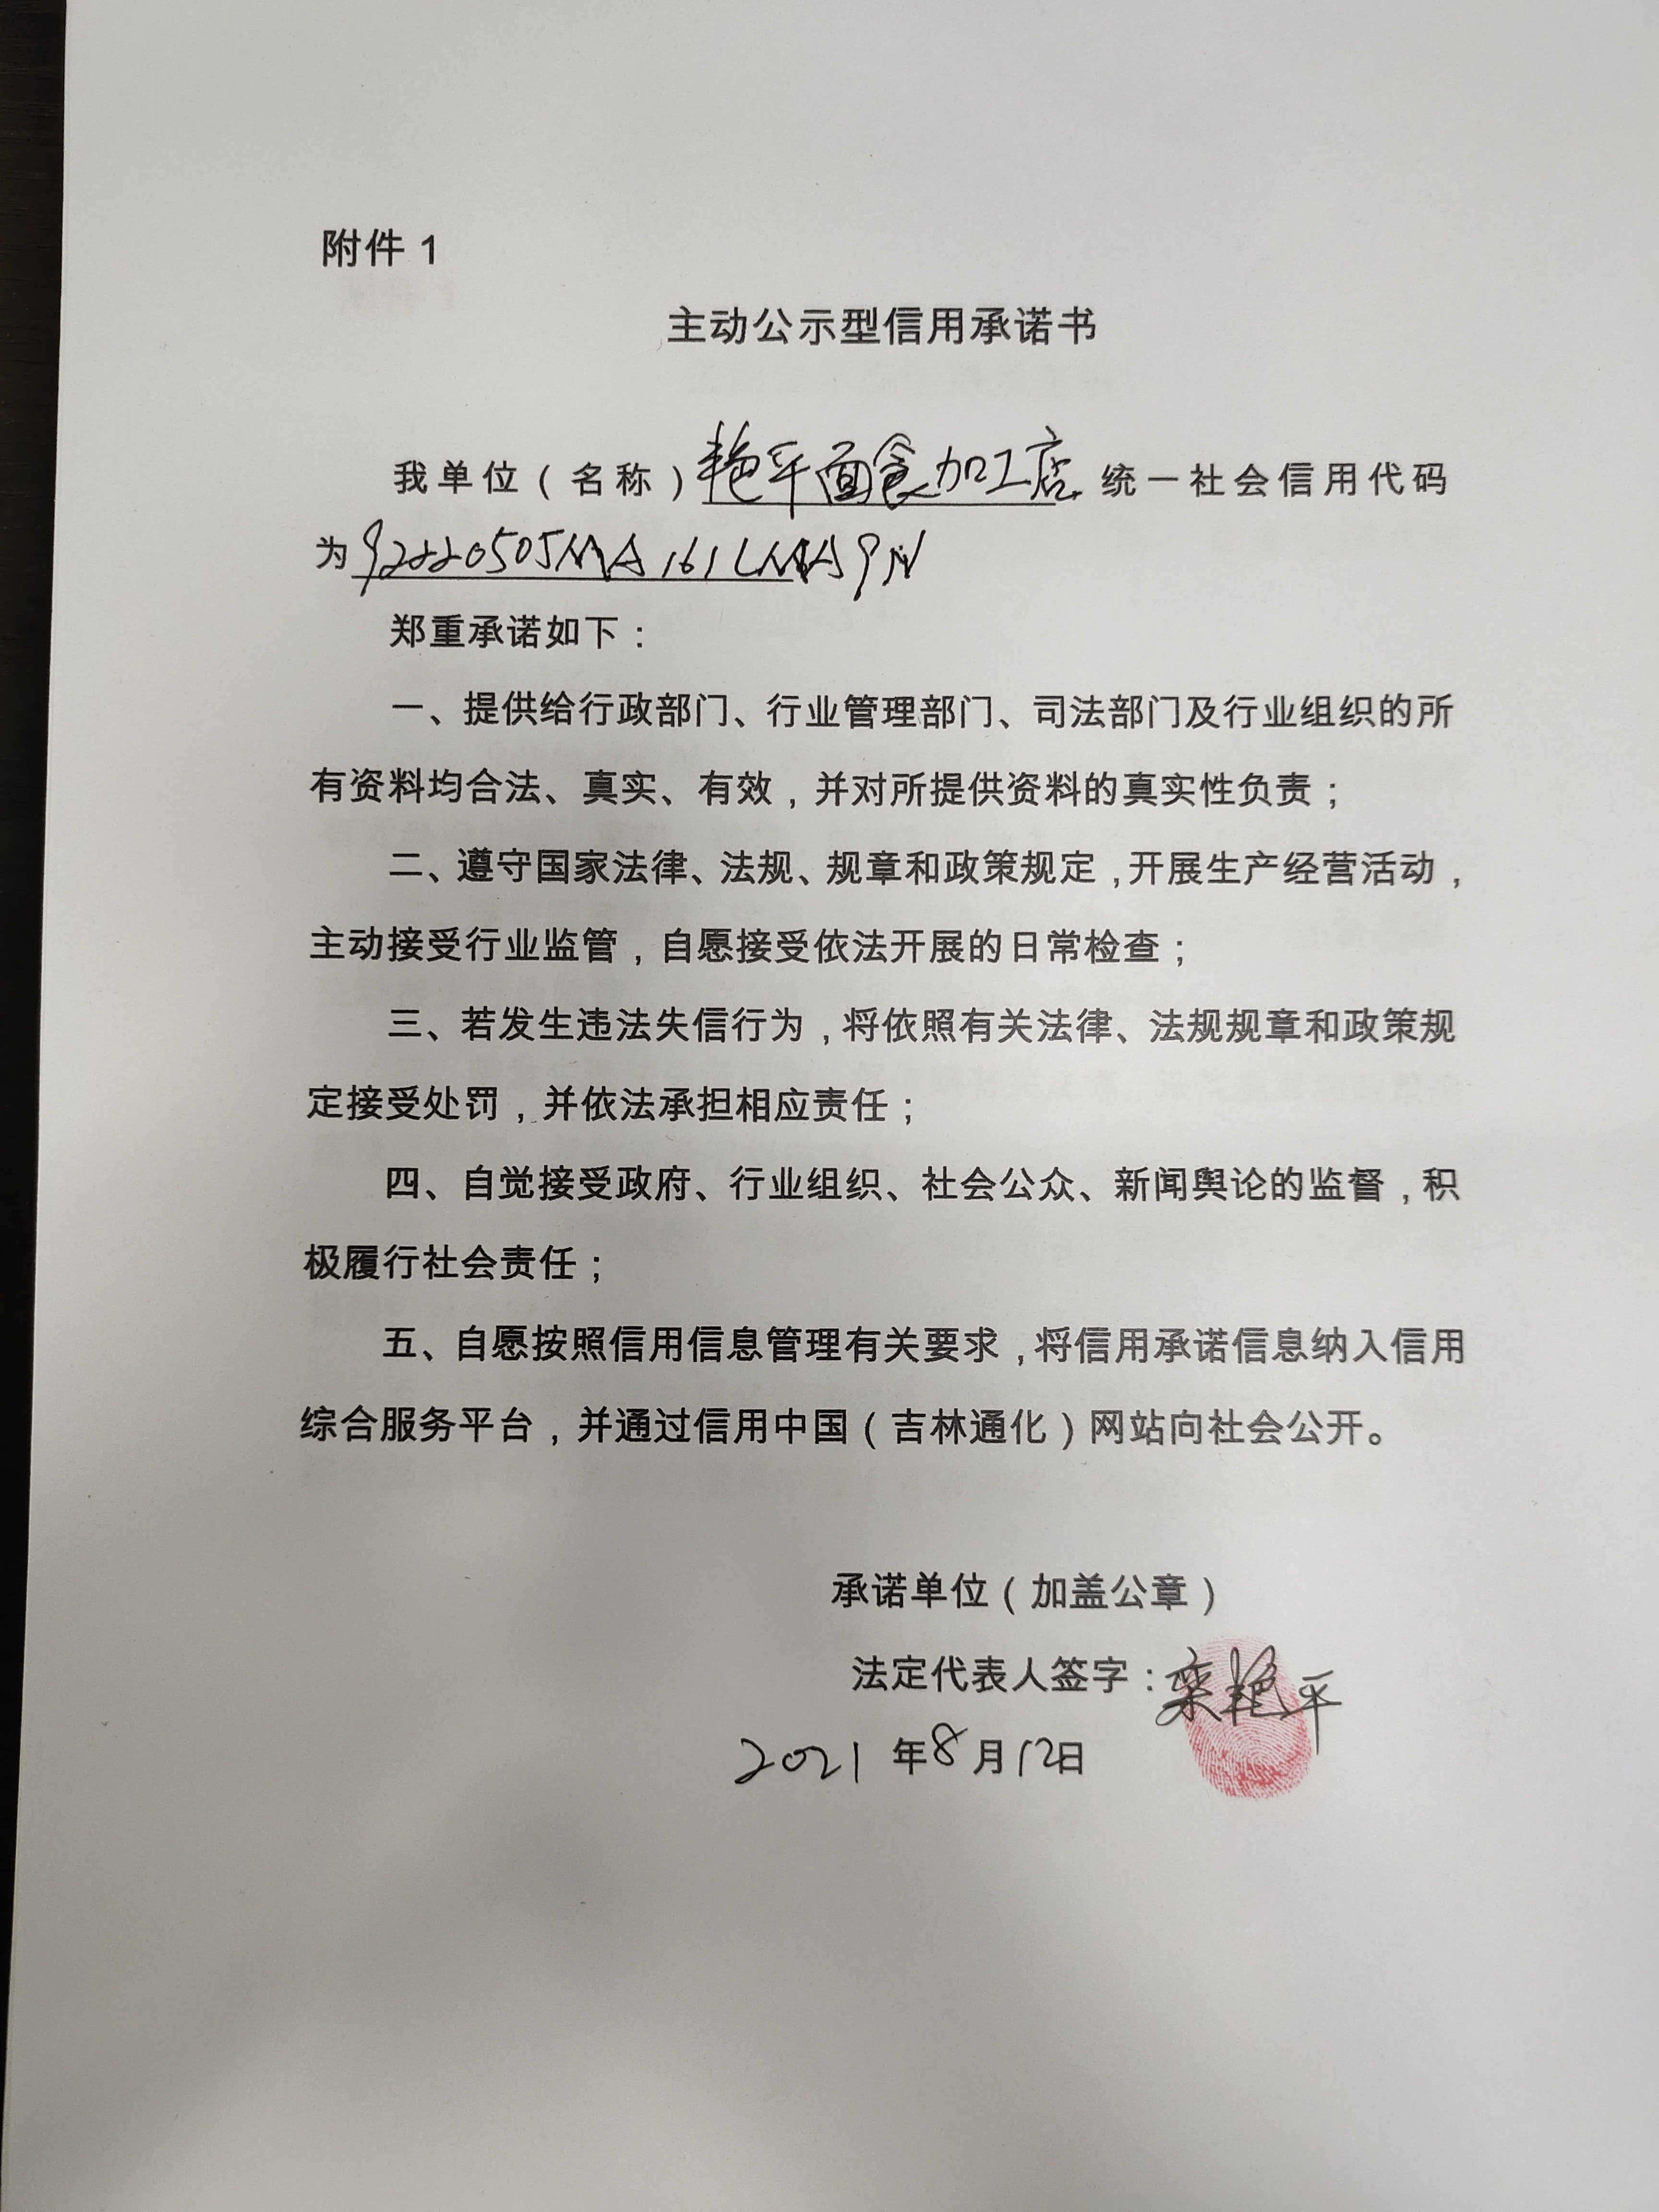 附件 1
主动公示型信用承诺书
我单位（名称）艳平面食加工店 统一社会信用代码
为92220505MA161LMA9N
郑重承诺如下：
一、提供给行政部门、行业管理部门、司法部门及行业组织的所
有资料均合法、真实、有效，并对所提供资料的真实性负责；
二、遵守国家法律、法规、规章和政策规定，开展生产经营活动，
主动接受行业监管，自愿接受依法开展的日常检查；
三、若发生违法失信行为，将依照有关法律、法规规章和政策规
定接受处罚，并依法承担相应责任；
四、自觉接受政府、行业组织、社会公众、新闻舆论的监督，积
极履行社会责任；
五、自愿按照信用信息管理有关要求，将信用承诺信息纳入信用
综合服务平台，并通过信用中国（吉林通化）网站向社会公开。
承诺单位（加盖公章）
法定代表人签字：栾艳平
2021 年8月12日